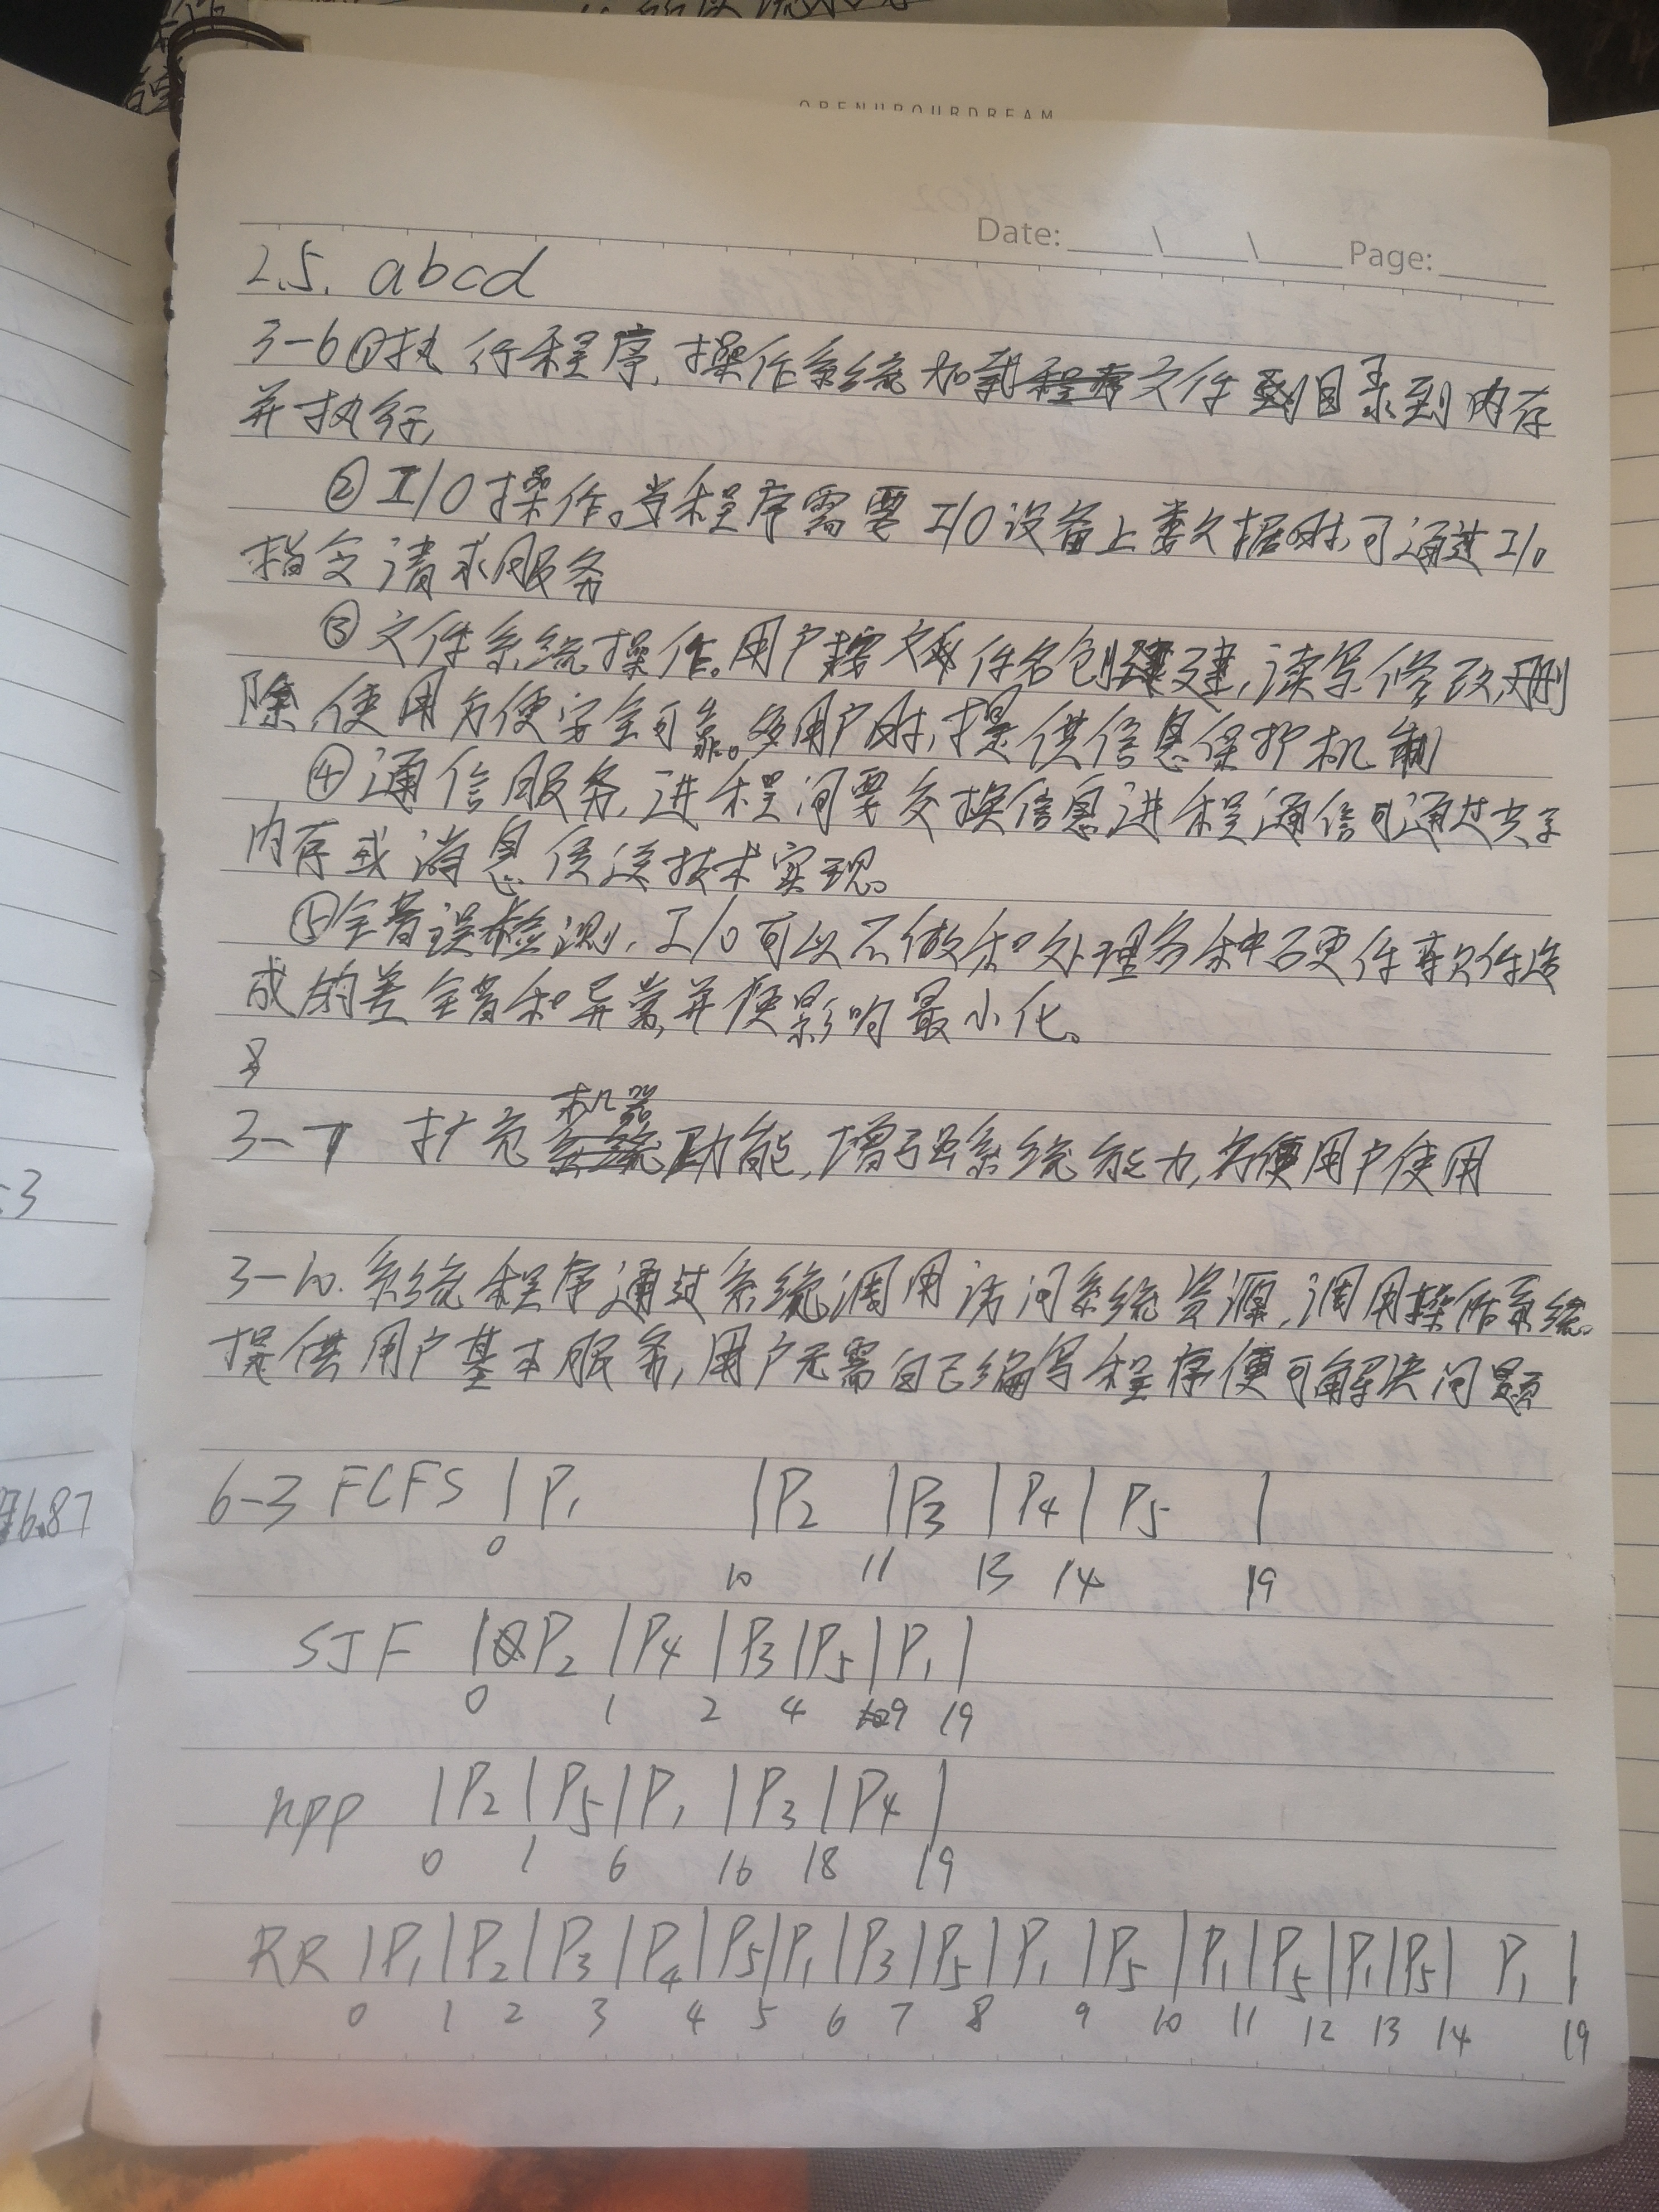 OPENUPOURDREAM
Date: \ \ Page:
2.5. abcd
3-6①执行程序,操作系统加载文件到目录到内存
并执行,
②I/O操作。当程序需要I/O设备上数据时,可通过I/O
指令请求服务
③文件系统操作。用户按文件名创建,读写,修改,删
除,使用方便安全可靠。多用户时,提供信息保护机制
④通信服务,进程间要交换信息,进程通信可通过共享
内存或消息传送技术实现。
⑤错误检测,I/O可以 和处理多种硬件软件造
成的差错和异常,并使影响最小化。
3-7 扩充机器功能,增强系统能力,方便用户使用
3-10.系统程序通过系统调用访问系统资源,调用操作系统
提供用户基本服务,用户无需自己编写程序便可解决问题
-3
6.87
6-3 FCFS | P1 | P2 | P3 | P4 | P5 |
0 10 11 13 14 19
SJF | P2 | P4 | P3 | P5 | P1 |
0 1 2 4 9 19
npp | P2 | P5 | P1 | P3 | P4 |
0 1 6 16 18 19
RR | P1 | P2 | P3 | P4 | P5 | P1 | P3 | P5 | P1 | P5 | P1 | P5 | P1 | P5 | P1 |
0 1 2 3 4 5 6 7 8 9 10 11 12 13 14 19